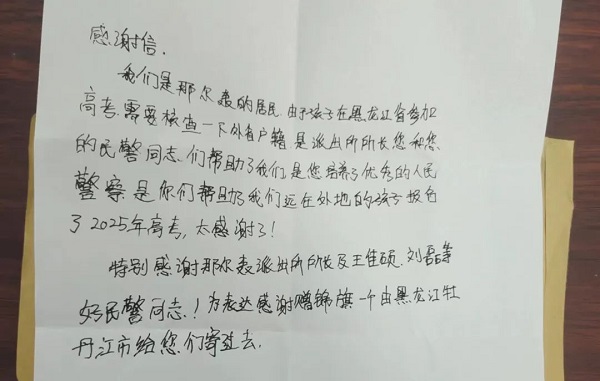 感谢信.
我们是那尔轰的居民由于孩子在黑龙江省参加
高考需要核查一下外省户籍是派出所所长您和您
的民警同志.们帮助了我们是您培养了优秀的人民
警察是你们帮助了我们远在外地的孩子报名
了2025年高考,太感谢了!
特别感谢那尔轰派出所所长及王佳硕.刘磊等
好民警同志.!为表达感谢赠锦旗一个由黑龙江牡
丹江市给您们寄过去.